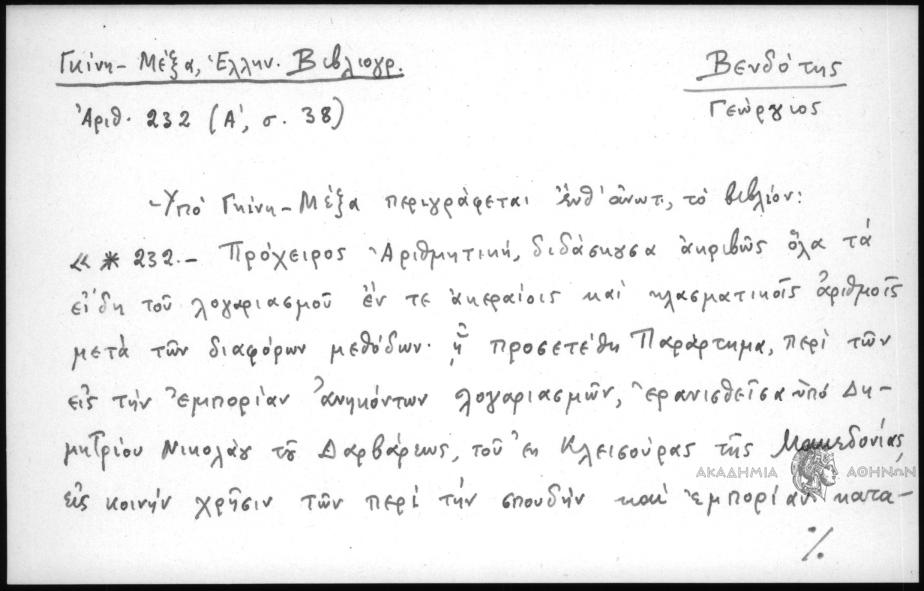 Γκίνη - Μέξα, Ἑλλην. Βιβλιογρ.
Βενδότης
Γεώργιος
Ἀριθ. 232 (Α', σ. 38)
Ὑπό Γκίνη - Μέξα περιγράφεται ἔνθ' ἀνωτ., τό βιβλίον:
« * 232. - Πρόχειρος Ἀριθμητική, διδάσκουσα ἀκριβῶς ὅλα τά
εἴδη τοῦ λογαριασμοῦ ἐν τε ἀκεραίοις καί κλασματικοῖς ἀριθμοῖς
μετά τῶν διαφόρων μεθόδων· ᾗ προσετέθη Παράρτημα, περί τῶν
εἰς τήν ἐμπορίαν ἀνηκόντων λογαριασμῶν, ἐρανισθεῖσα ὑπό Δη-
μητρίου Νικολάου τοῦ Δαρβάρεως, τοῦ ἐκ Κλεισούρας τῆς Μακεδονίας,
εἰς κοινήν χρῆσιν τῶν περί τήν σπουδήν καί ἐμπορίαν κατα-
ΑΚΑΔΗΜΙΑ ΑΘΗΝΩΝ
./.